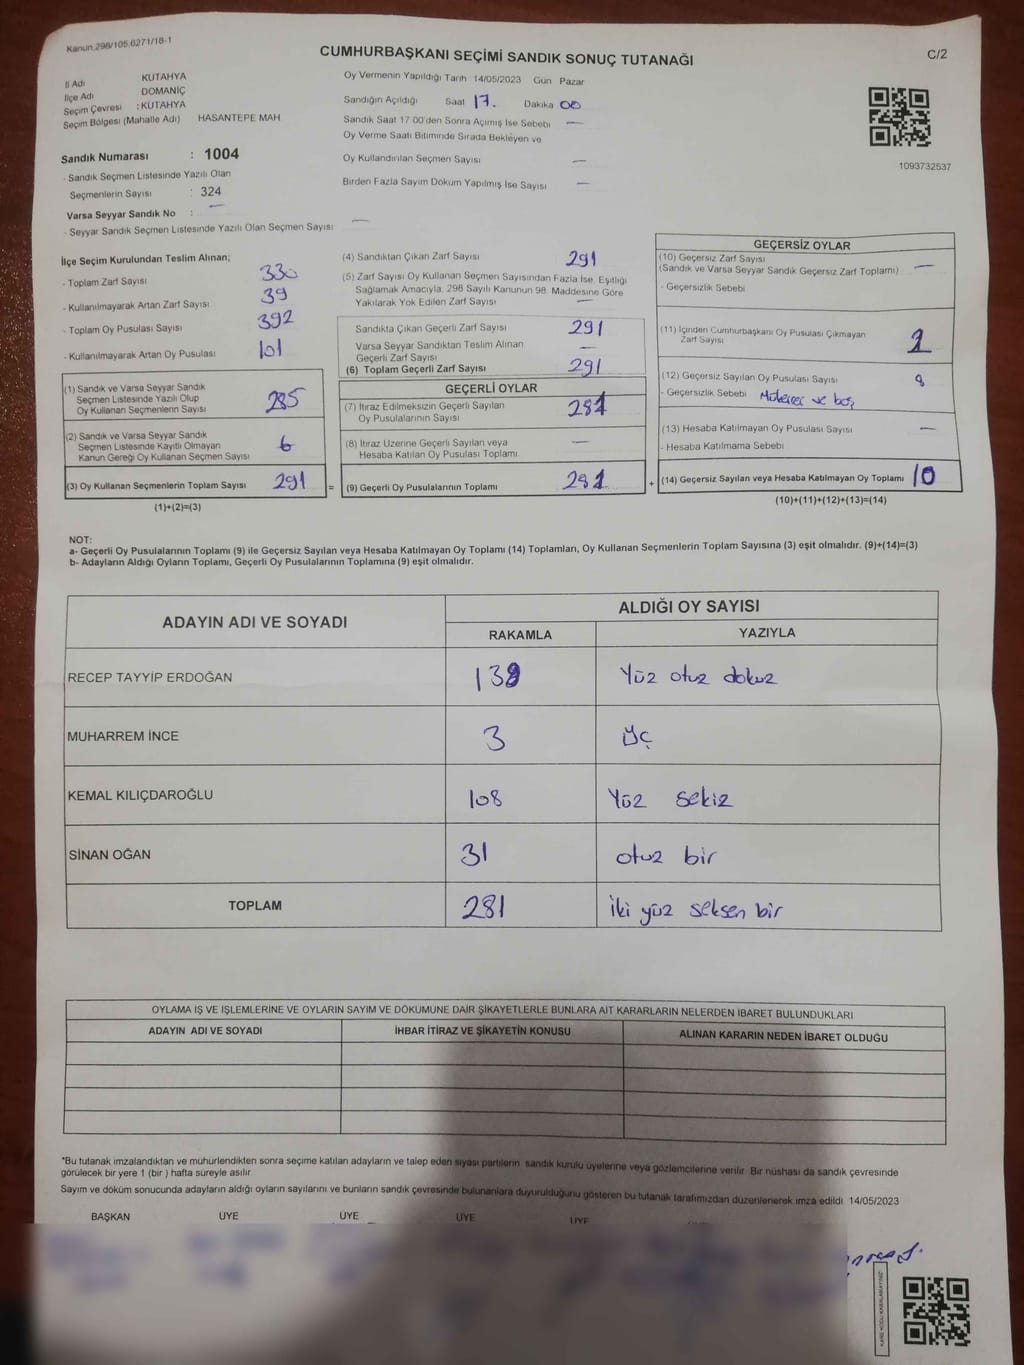 Kanun 298/105,6271/18-1
CUMHURBAŞKANI SEÇİMİ SANDIK SONUÇ TUTANAĞI
C/2
İl Adı KUTAHYA
İlçe Adı DOMANİÇ
Seçim Çevresi : KUTAHYA
Seçim Bölgesi (Mahalle Adı) HASANTEPE MAH
Oy Vermenin Yapıldığı Tarih 14/05/2023 Gün Pazar
Sandığın Açıldığı Saat 17. Dakika 00
Sandık Saat 17 00'den Sonra Açımış İse Sebebi —
Oy Verme Saati Bitiminde Sırada Bekleyen ve
Oy Kullandırılan Seçmen Sayısı —
Birden Fazla Sayım Döküm Yapılmış İse Sayısı —
1093732537
Sandık Numarası : 1004
- Sandık Seçmen Listesinde Yazılı Olan
Seçmenlerin Sayısı : 324
Varsa Seyyar Sandık No : —
- Seyyar Sandık Seçmen Listesinde Yazılı Olan Seçmen Sayısı —
İlçe Seçim Kurulundan Teslim Alınan;
- Toplam Zarf Sayısı 330
- Kullanılmayarak Artan Zarf Sayısı 39
- Toplam Oy Pusulası Sayısı 392
- Kullanılmayarak Artan Oy Pusulası 101
(1) Sandık ve Varsa Seyyar Sandık
Seçmen Listesinde Yazılı Olup
Oy Kullanan Seçmenlerin Sayısı 285
(2) Sandık ve Varsa Seyyar Sandık
Seçmen Listesinde Kayıtlı Olmayan
Kanun Gereği Oy Kullanan Seçmen Sayısı 6
(3) Oy Kullanan Seçmenlerin Toplam Sayısı 291
(1)+(2)=(3)
(4) Sandıktan Çıkan Zarf Sayısı 291
(5) Zarf Sayısı Oy Kullanan Seçmen Sayısından Fazla İse, Eşitliği
Sağlamak Amacıyla, 298 Sayılı Kanunun 98. Maddesine Göre
Yakılarak Yok Edilen Zarf Sayısı —
Sandıkta Çıkan Geçerli Zarf Sayısı 291
Varsa Seyyar Sandıktan Teslim Alınan
Geçerli Zarf Sayısı —
(6) Toplam Geçerli Zarf Sayısı 291
GEÇERLİ OYLAR
(7) İtiraz Edilmeksizin Geçerli Sayılan
Oy Pusulalarının Sayısı 281
(8) İtiraz Üzerine Geçerli Sayılan veya
Hesaba Katılan Oy Pusulası Toplamı —
= (9) Geçerli Oy Pusulalarının Toplamı 281
GEÇERSİZ OYLAR
(10) Geçersiz Zarf Sayısı
(Sandık ve Varsa Seyyar Sandık Geçersiz Zarf Toplamı) —
- Geçersizlik Sebebi
(11) İçinden Cumhurbaşkanı Oy Pusulası Çıkmayan
Zarf Sayısı
(12) Geçersiz Sayılan Oy Pusulası Sayısı
- Geçersizlik Sebebi ve boş
(13) Hesaba Katılmayan Oy Pusulası Sayısı —
- Hesaba Katılmama Sebebi
+ (14) Geçersiz Sayılan veya Hesaba Katılmayan Oy Toplamı 10
(10)+(11)+(12)+(13)=(14)
NOT:
a- Geçerli Oy Pusulalarının Toplamı (9) ile Geçersiz Sayılan veya Hesaba Katılmayan Oy Toplamı (14) Toplamları, Oy Kullanan Seçmenlerin Toplam Sayısına (3) eşit olmalıdır. (9)+(14)=(3)
b- Adayların Aldığı Oyların Toplamı, Geçerli Oy Pusulalarının Toplamına (9) eşit olmalıdır.
ADAYIN ADI VE SOYADI ALDIĞI OY SAYISI
RAKAMLA YAZIYLA
RECEP TAYYİP ERDOĞAN 139 Yüz otuz dokuz
MUHARREM İNCE 3 Üç
KEMAL KILIÇDAROĞLU 108 Yüz sekiz
SİNAN OĞAN 31 otuz bir
TOPLAM 281 iki yüz seksen bir
OYLAMA İŞ VE İŞLEMLERİNE VE OYLARIN SAYIM VE DÖKÜMÜNE DAİR ŞİKAYETLERLE BUNLARA AİT KARARLARIN NELERDEN İBARET BULUNDUKLARI
ADAYIN ADI VE SOYADI İHBAR İTİRAZ VE ŞİKAYETİN KONUSU ALINAN KARARIN NEDEN İBARET OLDUĞU
*Bu tutanak imzalandıktan ve mühürlendikten sonra seçime katılan adayların ve talep eden siyasi partilerin sandık kurulu üyelerine veya gözlemcilerine verilir. Bir nüshası da sandık çevresinde
görülecek bir yere 1 (bir ) hafta süreyle asılır.
Sayım ve döküm sonucunda adayların aldığı oyların sayılarını ve bunların sandık çevresinde bulunanlara duyurulduğunu gösteren bu tutanak tarafımızdan düzenlenerek imza edildi. 14/05/2023
BAŞKAN ÜYE ÜYE ÜYE ÜYE